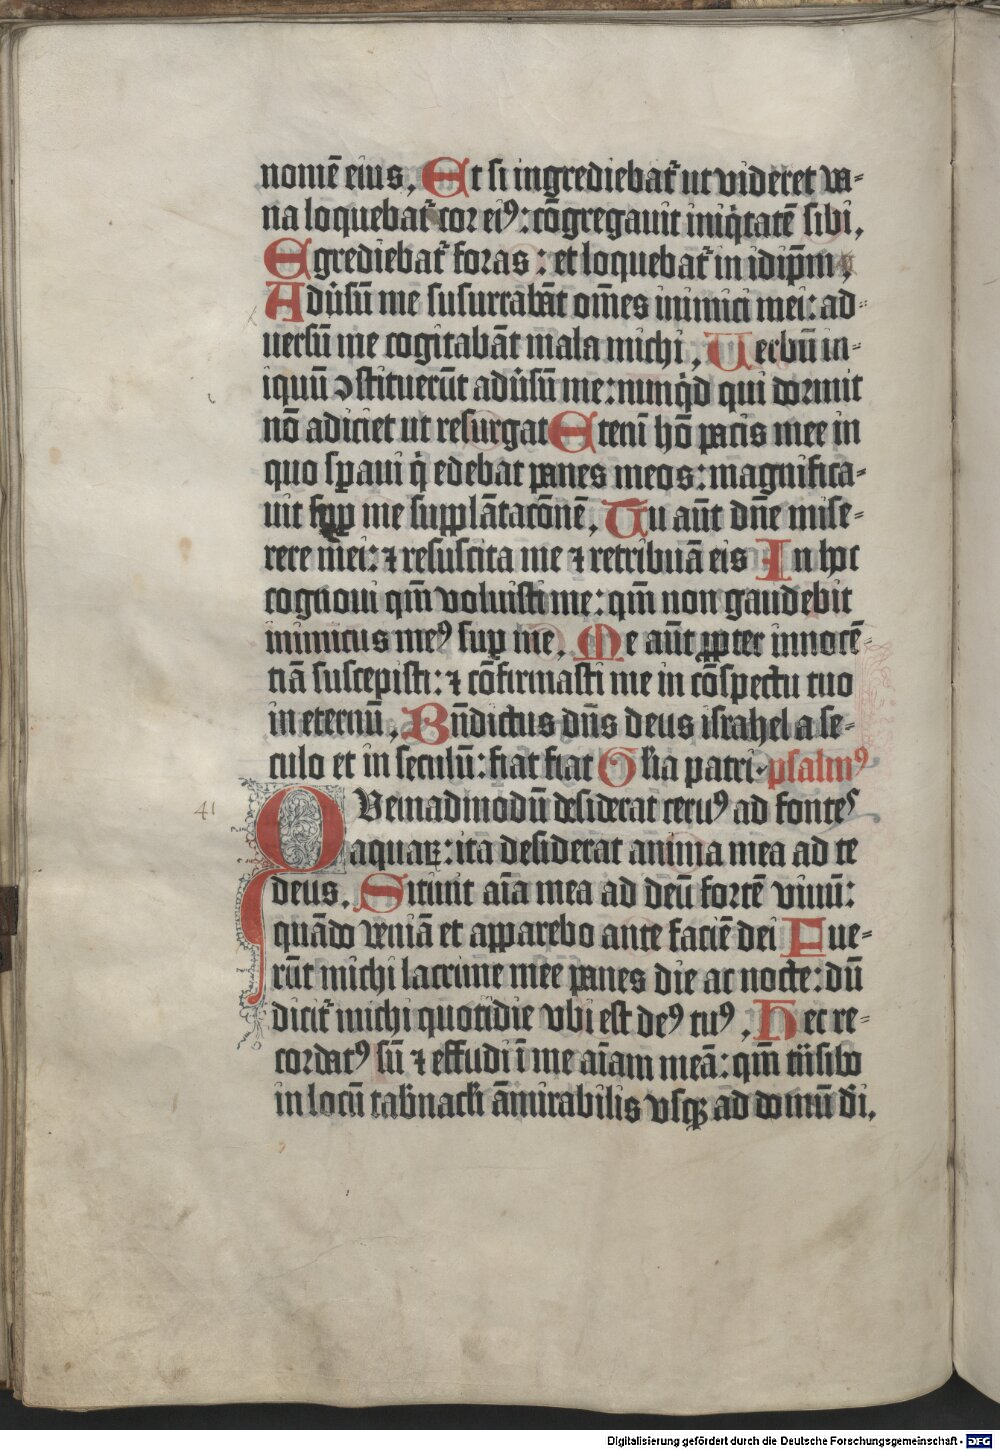 nomē eius. Et si ingrediebat᷑ ut videret va-
na loquebat᷑ cor ei⁹: cōgregauit iniq̇tatē sibi.
Egrediebat᷑ foras: et loquebat᷑ in idip̄m.
Adūsū me susurrabāt om̄es inimici mei: ad-
uersū me cogitabāt mala michi. Uerbū in-
iquū ꝯstituerūt adūsū me: nunq̇d qui dormit
nō adiciet ut resurgat Etenī hō pacis mee in
quo sꝑaui q̇ edebat panes meos: magnifica-
uit me supplātac̄onē. Tu aūt dn̄e mise-
rere mei: ⁊ resuscita me ⁊ retribuā eis In hoc
cognoui qm̄ voluisti me: qm̄ non gaudebit
inimicus me⁹ suꝑ me. Me aūt ꝓpter innocē-
tiā suscepisti: ⁊ cōfirmasti me in cōspectu tuo
in eternū. Bn̄dictus dn̄s deus israhel a se-
culo et in seculū: fiat fiat Gl̄ia patri. psalm⁹
41
QUemadmodū desiderat ceru⁹ ad fontes
aquaꝝ: ita desiderat anima mea ad te
deus. Sitiuit aīa mea ad deū fortē viuū:
quādo veniā et apparebo ante faciē dei Fue-
rūt michi lacrime mee panes die ac nocte: dū
dicit᷑ michi quotidie vbi est de⁹ tu⁹. Hec re-
cordat⁹ sū ⁊ effudi ī me aīam meā: qm̄ trāsibo
in locū tab̄nacl̄i āmirabilis vsqꝫ ad domū d̄i.
Digitalisierung gefördert durch die Deutsche Forschungsgemeinschaft - DFG